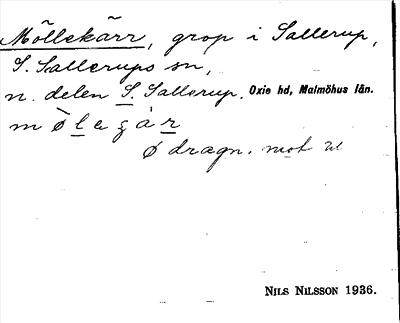 Möllekärr, grop i Sallerup,
S. Sallerups sn,
n. delen S. Sallerup. Oxie hd, Malmöhus lån.
ø dragn. mot
NILS NILSSON 1936.